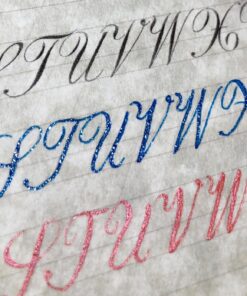 STUVWX
STUVWX
STUVW